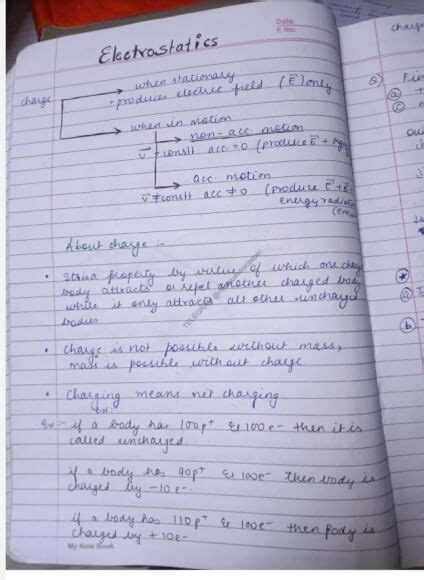 Date:
P. No:
Electrostatics
charge
when stationary
• produces electric field (E⃗) only
when in motion
non-acc. motion
v⃗ = constt acc. = 0 (produce E⃗ +
acc. motion
v⃗ ≠ constt acc ≠ 0 (produce E⃗ +
energy
About charge :-
• property by virtue of which one
body attracts or repel another charged body
while it only attracts all other uncharged
bodies
• charge is not possible without mass,
mass is possible without charge
• Charging means net charging
Ex:
Ex:- if a body has 100p⁺ & 100e- then it is
called uncharged.
if a body has 90p⁺ & 100e- then body is
charged by -10e-.
if a body has 110p⁺ & 100e- then body is
charged by +10e-
My Note Book
TELEGRAM
charge
Q)
a
c
*
a
b